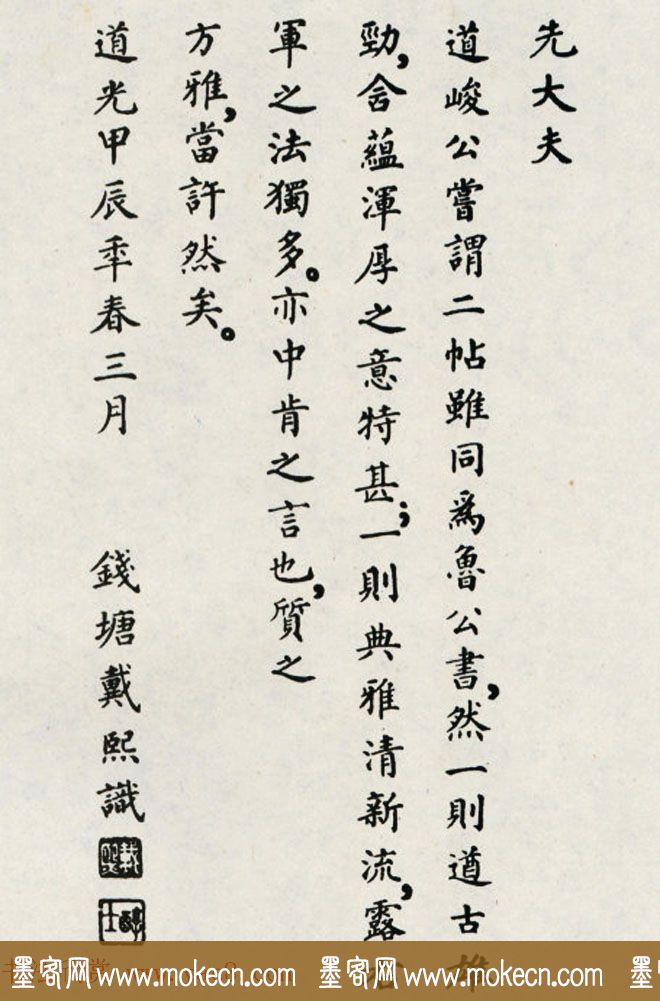 先大夫
道峻公嘗謂二帖雖同爲魯公書,然一則遒古雄
勁,含蘊渾厚之意特甚;一則典雅清新流,露右
軍之法獨多。亦中肯之言也,質之
方雅,當許然矣。
道光甲辰季春三月 錢塘戴熙識
戴熙
醇士
墨客网 www.mokecn.com 墨客网 www.mokecn.com